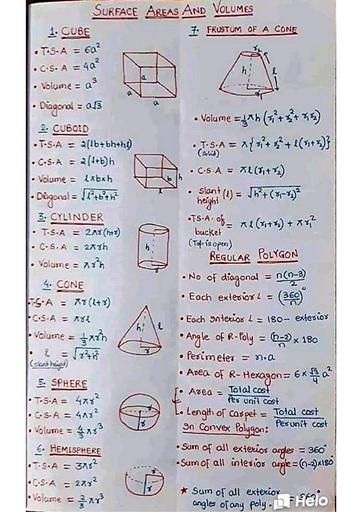 SURFACE AREAS AND VOLUMES
1. CUBE
• T.S.A = 6a²
• C.S.A = 4a²
• Volume = a³
• Diagonal = a√3
a
a
a
2. CUBOID
• T.S.A = 2(lb+bh+hl)
• C.S.A = 2(l+b)h
• Volume = l×b×h
• Diagonal = √l²+b²+h²
h
b
l
3. CYLINDER
• T.S.A = 2πr(h+r)
• C.S.A = 2πrh
• Volume = πr²h
h
r
4. CONE
• T.S.A = πr(l+r)
• C.S.A = πrl
• Volume = 1/3 πr²h
• l = √r²+h²
(slant height)
h
l
r
5. SPHERE
• T.S.A = 4πr²
• C.S.A = 4πr²
• Volume = 4/3 πr³
r
r
6. HEMISPHERE
• T.S.A = 3πr²
• C.S.A = 2πr²
• Volume = 2/3 πr³
r
r
7. FRUSTUM OF A CONE
r₂
h
l
r₁
• Volume = 1/3 πh (r₁²+r₂²+r₁r₂)
• T.S.A = π{r₁²+r₂²+l(r₁+r₂)}
(solid)
• C.S.A = πl(r₁+r₂)
• slant (l) = √h²+(r₁-r₂)²
height
• TSA of = πl(r₁+r₂) + πr₁²
bucket
(Top is open)
REGULAR POLYGON
• No of diagonal = n(n-3)/2
• Each exterior ∠ = (360/n)°
• Each Interior ∠ = 180 - exterior
• Angle of R-Poly = (n-2)/n × 180
• Perimeter = n.a
• Area of R-Hexagon = 6 × √3/4 a²
• Area = Total cost/Per unit cost
• Length of Carpet = Total cost/Per unit cost
In Convex Polygon:
• Sum of all exterior angles = 360°
• Sum of all interior angle = (n-2)×180
★ Sum of all exterior
angles of any poly. 360°
Helo